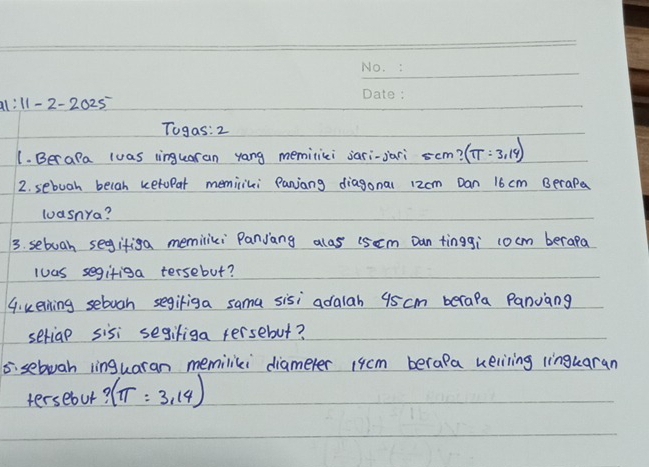 No. :
Date :
al : 11 - 2 - 2025
Tugas : 2
1. Berapa luas lingkaran yang memiliki jari-jari 5 cm? (π = 3,14)
2. sebuah belah ketupat memiliki Panjang diagonal 12 cm Dan 16 cm Berapa
luasnya?
3. sebuah segitiga memiliki Panjang alas 15 cm Dan tinggi 10 cm berapa
luas segitiga tersebut?
4. keliling sebuah segitiga sama sisi adalah 45 cm berapa Panjang
setiap sisi segitiga tersebut?
5. sebuah lingkaran memiliki diameter 14 cm berapa keliling lingkaran
tersebut? (π = 3,14)